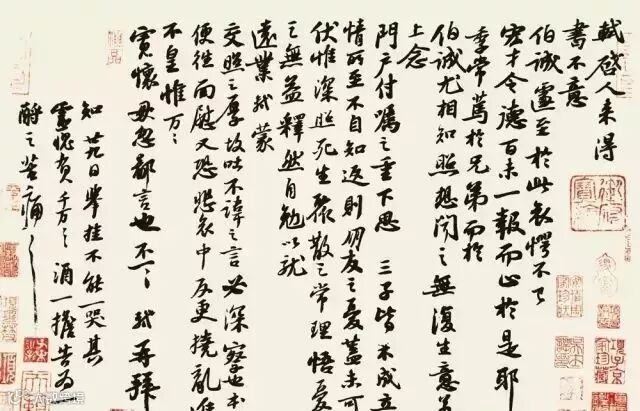 軾啓人来得
書不意
伯誠遽至於此哀愕不已
宏才令德百未一報而止於是耶
季常篤於兄弟而於
伯誠尤相知照想聞之無復生意
上念
門户付囑之重下思三子皆未成立
情所至不自知返則朋友之憂蓋未可
伏惟深照死生聚散之常理悟憂
之無益釋然自勉以就
遠業軾蒙
交照之厚故吐不諱之言必深察也本
便往面慰又恐悲哀中反更撓亂進
不皇惟万〻
寬懷毋忽鄙言也不一〻軾再拜
知廿九日舉挂不能一哭其
靈愧負千万〻酒一擔告為
酹之苦痛〻